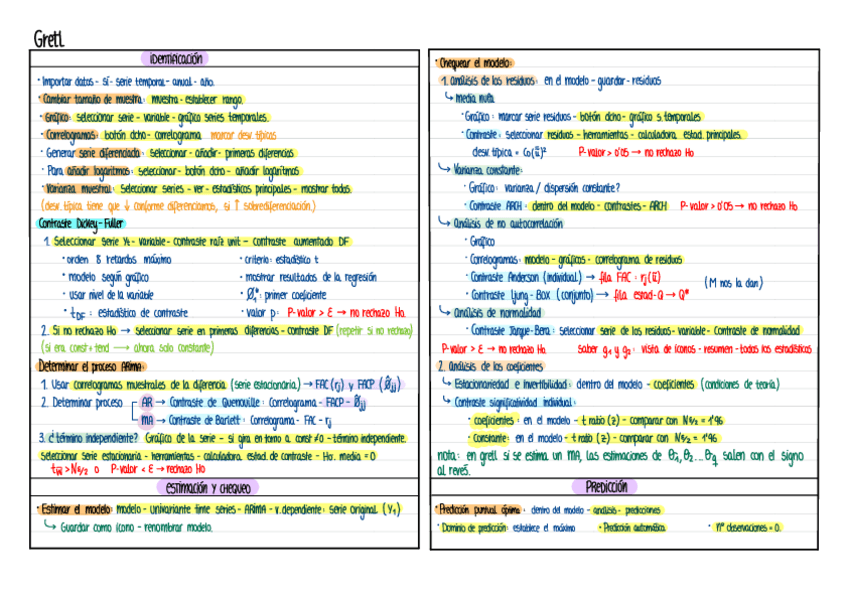 Gretl
identificación
· Importar datos - sí - serie temporal - anual - año.
· Cambiar tamaño de muestra: muestra - establecer rango.
· Gráfico: seleccionar serie - variable - gráfico series temporales.
· Correlogramas: botón dcho - correlograma marcar desv. típicas
· Generar serie diferenciada: seleccionar - añadir - primeras diferencias
· Para añadir logaritmos: seleccionar - botón dcho - añadir logaritmos
· Varianza muestral: seleccionar series - ver - estadísticos principales - mostrar todos.
(desv. típica tiene que ↓ conforme diferenciamos, si ↑ sobrediferenciación.)
Contraste Dickey-Fuller
1. Seleccionar serie Yt - variable - contraste raíz unit - contraste aumentado DF
· orden 8 retardos máximo · criterio: estadístico t
· modelo según gráfico · mostrar resultados de la regresión
· usar nivel de la variable · Ø₁*: primer coeficiente
· tDF: estadístico de contraste · valor p: P-valor > ε → no rechazo Ho.
2. Si no rechazo Ho → seleccionar serie en primeras diferencias - contraste DF (repetir si no rechazo)
(si era const + tend → ahora solo constante)
Determinar el proceso ARIMA:
1. Usar correlogramas muestrales de la diferencia (serie estacionaria) → FAC (rj) y FACP (Ø̂jj)
2. Determinar proceso AR → Contraste de Quenouille: Correlograma - FACP - Ø̂jj
MA → Contraste de Barlett: Correlograma - FAC - rj
3. ¿término independiente? Gráfico de la serie - si gira en torno a const ≠0 - término independiente.
Seleccionar serie estacionaria - herramientas - calculadora estad. de contraste - Ho. media = 0
tw̄ > Nε/2 o P-valor < ε → rechazo Ho
estimación y chequeo
· Estimar el modelo: modelo - univariante time series - ARIMA - v.dependiente: serie original (Y₁)
↳ Guardar como icono - renombrar modelo.
· Chequear el modelo:
1. análisis de los residuos: en el modelo - guardar - residuos
↳ media nula
· Gráfico: marcar serie residuos - botón dcho - gráfico s temporales
· Contraste: seleccionar residuos - herramientas - calculadora estad. principales.
desv. típica = Co(û)² P-valor > 0'05 → no rechazo Ho
↳ Varianza constante:
· Gráfico: varianza / dispersión constante?
· Contraste ARCH: dentro del modelo - contrastes - ARCH P-valor > 0'05 → no rechazo Ho
↳ Análisis de no autocorrelación
· Gráfico
· Correlogramas: modelo - gráficos - correlograma de residuos
· Contraste Anderson (individual) → fila FAC: rj(û) (M nos la dan)
· Contraste Ljung-Box (conjunto) → fila estad-Q → Q*
↳ Análisis de normalidad
· Contraste Jarque-Bera: seleccionar serie de los residuos - variable - contraste de normalidad
P-valor > ε → no rechazo Ho. Saber g₁ y g₂: vista de iconos - resumen - todos los estadísticos
2. Análisis de los coeficientes
↳ Estacionariedad e invertibilidad: dentro del modelo - coeficientes (condiciones de teoría)
↳ Contraste significatividad individual:
· coeficientes: en el modelo - t ratio (z) - comparar con Nε/2 = 1'96
· Constante: en el modelo - t ratio (z) - comparar con Nε/2 = 1'96
nota: en gretl si se estima un MA, las estimaciones de θ₁,θ₂...θq salen con el signo
al revés.
PREDICCIÓN
· Predicción puntual óptima: dentro del modelo - análisis - predicciones
· Dominio de predicción: establece el máximo · Predicción automática. · nº observaciones = 0.